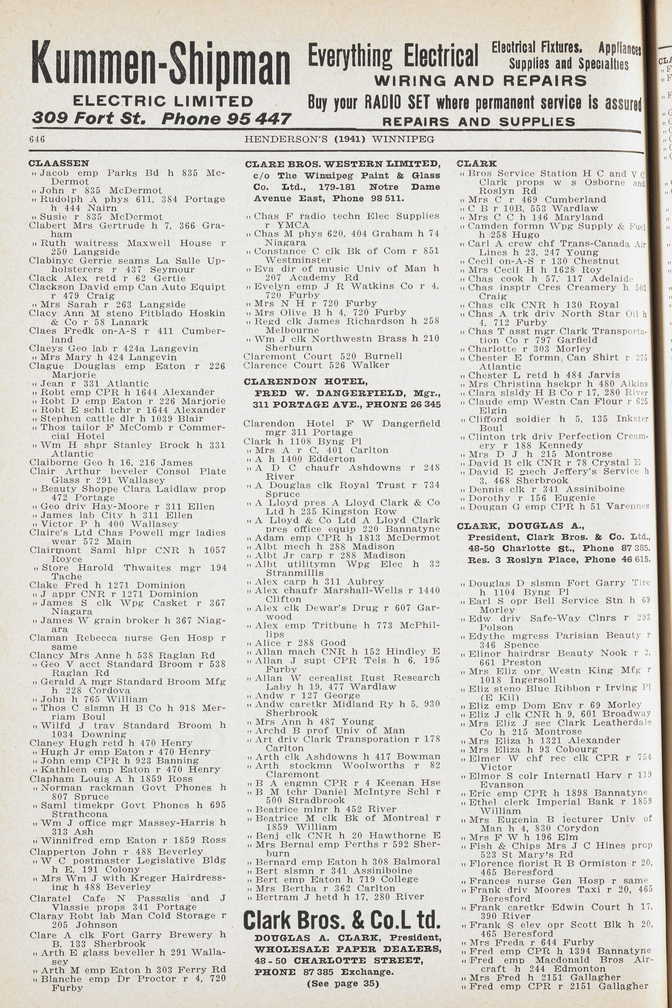 Kummen-Shipman
ELECTRIC LIMITED
309 Fort St. Phone 95 447
Everything Electrical
Electrical Fixtures. Appliances
Supplies and Specialties
WIRING AND REPAIRS
Buy your RADIO SET where permanent service is assured
REPAIRS AND SUPPLIES
646
HENDERSON'S (1941) WINNIPEG
CLAASSEN
" Jacob emp Parks Bd h 835 Mc-
Dermot
" John r 835 McDermot
" Rudolph A phys 611, 384 Portage
h 444 Nairn
" Susie r 835 McDermot
Clabert Mrs Gertrude h 7, 366 Gra-
ham
" Ruth waitress Maxwell House r
250 Langside
Clabinyc Gerrie seams La Salle Up-
holsterers r 437 Seymour
Clack Alex retd r 62 Gertie
Clackson David emp Can Auto Equipt
r 479 Craig
" Mrs Sarah r 263 Langside
Clacy Ann M steno Pitblado Hoskin
& Co r 58 Lanark
Claes Fredk on-A-S r 411 Cumber-
land
Claeys Geo lab r 424a Langevin
" Mrs Mary h 424 Langevin
Clague Douglas emp Eaton r 226
Marjorie
" Jean r 331 Atlantic
" Robt emp CPR h 1644 Alexander
" Robt D emp Eaton r 226 Marjorie
" Robt E schl tchr r 1644 Alexander
" Stephen cattle dlr h 1039 Blair
" Thos tailor F McComb r Commer-
cial Hotel
" Wm H shpr Stanley Brock h 331
Atlantic
Claiborne Geo h 16, 216 James
Clair Arthur beveler Consol Plate
Glass r 291 Wallasey
" Beauty Shoppe Clara Laidlaw prop
472 Portage
" Geo driv Hay-Moore r 311 Ellen
" James lab City h 311 Ellen
" Victor P h 400 Wallasey
Claire's Ltd Chas Powell mgr ladies
wear 572 Main
Clairmont Saml hlpr CNR h 1057
Royce
" Store Harold Thwaites mgr 194
Tache
Clake Fred h 1271 Dominion
" J appr CNR r 1271 Dominion
" James S clk Wpg Casket r 367
Niagara
" James W grain broker h 367 Niag-
ara
Claman Rebecca nurse Gen Hosp r
same
Clancy Mrs Anne h 538 Raglan Rd
" Geo V acct Standard Broom r 538
Raglan Rd
" Gerald A mgr Standard Broom Mfg
h 228 Cordova
" John h 765 William
" Thos C slsmn H B Co h 918 Mer-
riam Boul
" Wilfd J trav Standard Broom h
1034 Downing
Claney Hugh retd h 470 Henry
" Hugh Jr emp Eaton r 470 Henry
" John emp CPR h 923 Banning
" Kathleen emp Eaton r 470 Henry
Clapham Louis A h 1859 Ross
" Norman rackman Govt Phones h
807 Spruce
" Saml timekpr Govt Phones h 695
Strathcona
" Wm J office mgr Massey-Harris h
313 Ash
" Winnifred emp Eaton r 1859 Ross
Clapperton John r 488 Beverley
" W C postmaster Legislative Bldg
h E, 191 Colony
" Mrs Wm J with Kreger Hairdress-
ing h 488 Beverley
Claratel Cafe N Passalis and J
Vlassie props 341 Portage
Claray Robt lab Man Cold Storage r
205 Johnson
Clare A clk Fort Garry Brewery h
B, 133 Sherbrook
" Arth E glass beveller h 291 Walla-
sey
" Arth M emp Eaton h 303 Ferry Rd
" Blanche emp Dr Proctor r 4, 720
Furby
CLARE BROS. WESTERN LIMITED,
c/o The Winnipeg Paint & Glass
Co. Ltd., 179-181 Notre Dame
Avenue East, Phone 98 511.
" Chas F radio techn Elec Supplies
r YMCA
" Chas M phys 620, 404 Graham h 74
Niagara
" Constance C clk Bk of Com r 851
Westminster
" Eva dir of music Univ of Man h
207 Academy Rd
" Evelyn emp J R Watkins Co r 4,
720 Furby
" Mrs N H r 720 Furby
" Mrs Olive B h 4, 720 Furby
" Regd clk James Richardson h 258
Melbourne
" Wm J clk Northwestn Brass h 210
Sherburn
Claremont Court 520 Burnell
Clarence Court 526 Walker
CLARENDON HOTEL,
FRED W. DANGERFIELD, Mgr.,
311 PORTAGE AVE., PHONE 26 345
Clarendon Hotel F W Dangerfield
mgr 311 Portage
Clark h 1108 Byng Pl
" Mrs A r C, 401 Carlton
" A h 1400 Edderton
" A D C chaufr Ashdowns r 248
River
" A Douglas clk Royal Trust r 734
Spruce
" A Lloyd pres A Lloyd Clark & Co
Ltd h 235 Kingston Row
" A Lloyd & Co Ltd A Lloyd Clark
pres office equip 220 Bannatyne
" Adam emp CPR h 1813 McDermot
" Albt mech h 288 Madison
" Albt Jr carp r 288 Madison
" Albt utilitymn Wpg Elec h 32
Stranmillis
" Alex carp h 311 Aubrey
" Alex chaufr Marshall-Wells r 1440
Clifton
" Alex clk Dewar's Drug r 607 Gar-
wood
" Alex emp Tritbune h 773 McPhil-
lips
" Alice r 288 Good
" Allan mach CNR h 152 Hindley E
" Allan J supt CPR Tels h 6, 195
Furby
" Allan W cerealist Rust Research
Laby h 19, 477 Wardlaw
" Andw r 127 George
" Andw caretkr Midland Ry h 5, 930
Sherbrook
" Mrs Ann h 487 Young
" Archd B prof Univ of Man
" Art driv Clark Transporation r 178
Carlton
" Arth clk Ashdowns h 417 Bowman
" Arth stockmn Woolworths r 82
Claremont
" B A engmn CPR r 4 Keenan Hse
" B M tchr Daniel McIntyre Schl r
500 Stradbrook
" Beatrice mlnr h 452 River
" Beatrice M clk Bk of Montreal r
1859 William
" Benj clk CNR h 20 Hawthorne E
" Mrs Bernal emp Perths r 592 Sher-
burn
" Bernard emp Eaton h 308 Balmoral
" Bert slsmn r 341 Assiniboine
" Bert emp Eaton h 719 College
" Mrs Bertha r 362 Carlton
" Bertram J hetd h 17, 280 River
Clark Bros. & Co. Ltd.
DOUGLAS A. CLARK, President,
WHOLESALE PAPER DEALERS,
48-50 CHARLOTTE STREET,
PHONE 87 385 Exchange.
(See page 35)
CLARK
" Bros Service Station H C and V C
Clark props w s Osborne and
Roslyn Rd
" Mrs C r 469 Cumberland
" C B r 10B, 553 Wardlaw
" Mrs C C h 146 Maryland
" Camden formn Wpg Supply & Fuel
h 258 Hugo
" Carl A crew chf Trans-Canada Air
Lines h 23, 247 Young
" Cecil on-A-S r 130 Chestnut
" Mrs Cecil H h 1628 Roy
" Chas cook h 57, 117 Adelaide
" Chas insptr Cres Creamery h 503
Craig
" Chas clk CNR h 130 Royal
" Chas A trk driv North Star Oil h
4, 712 Furby
" Chas T asst mgr Clark Transporta-
tion Co r 797 Garfield
" Charlotte r 303 Morley
" Chester E formn Can Shirt r 275
Atlantic
" Chester L retd h 484 Jarvis
" Mrs Christina hsekpr h 480 Aikins
" Clara slsldy H B Co r 17, 280 River
" Claude emp Westn Can Flour r 625
Elgin
" Clifford soldier h 5, 135 Inkster
Boul
" Clinton trk driv Perfection Cream-
ery r 188 Kennedy
" Mrs D J h 215 Montrose
" David B clk CNR r 78 Crystal E
" David E mech Jeffery's Service h
3, 468 Sherbrook
" Dennis clk r 341 Assiniboine
" Dorothy r 156 Eugenie
" Dougan G emp CPR h 51 Varennes
CLARK, DOUGLAS A.,
President, Clark Bros. & Co. Ltd.,
48-50 Charlotte St., Phone 87 385.
Res. 3 Roslyn Place, Phone 46 615.
" Douglas D slsmn Fort Garry Tire
h 1104 Byng Pl
" Earl S opr Bell Service Stn h 69
Morley
" Edw driv Safe-Way Clnrs r 293
Polson
" Edythe mgress Parisian Beauty r
346 Spence
" Elinor hairdrsr Beauty Nook r 2,
661 Preston
" Mrs Eliz opr Westn King Mfg r
1018 Ingersoll
" Eliz steno Blue Ribbon r Irving Pl
(E Kil)
" Eliz emp Dom Env r 69 Morley
" Eliz J clk CNR h 9, 601 Broadway
" Mrs Eliz J sec Clark Leatherdale
Co h 215 Montrose
" Mrs Eliza h 1321 Alexander
" Mrs Eliza h 93 Cobourg
" Elmer W chf rec clk CPR r 754
Victor
" Elmor S colr Internatl Harv r 119
Evanson
" Eric emp CPR h 1898 Bannatyne
" Ethel clerk Imperial Bank r 1859
William
" Mrs Eugenia B lecturer Univ of
Man h 4, 830 Corydon
" Mrs F W h 196 Elm
" Fish & Chips Mrs J C Hines prop
523 St Mary's Rd
" Florence florist R B Ormiston r 20,
465 Beresford
" Frances nurse Gen Hosp r same
" Frank driv Moores Taxi r 20, 465
Beresford
" Frank caretkr Edwin Court h 17,
390 River
" Frank S elev opr Scott Blk h 20,
465 Beresford
" Mrs Freda r 644 Furby
" Fred emp CPR h 1394 Bannatyne
" Fred emp Macdonald Bros Air-
craft h 244 Edmonton
" Mrs Fred h 2151 Gallagher
" Fred emp CPR r 2151 Gallagher